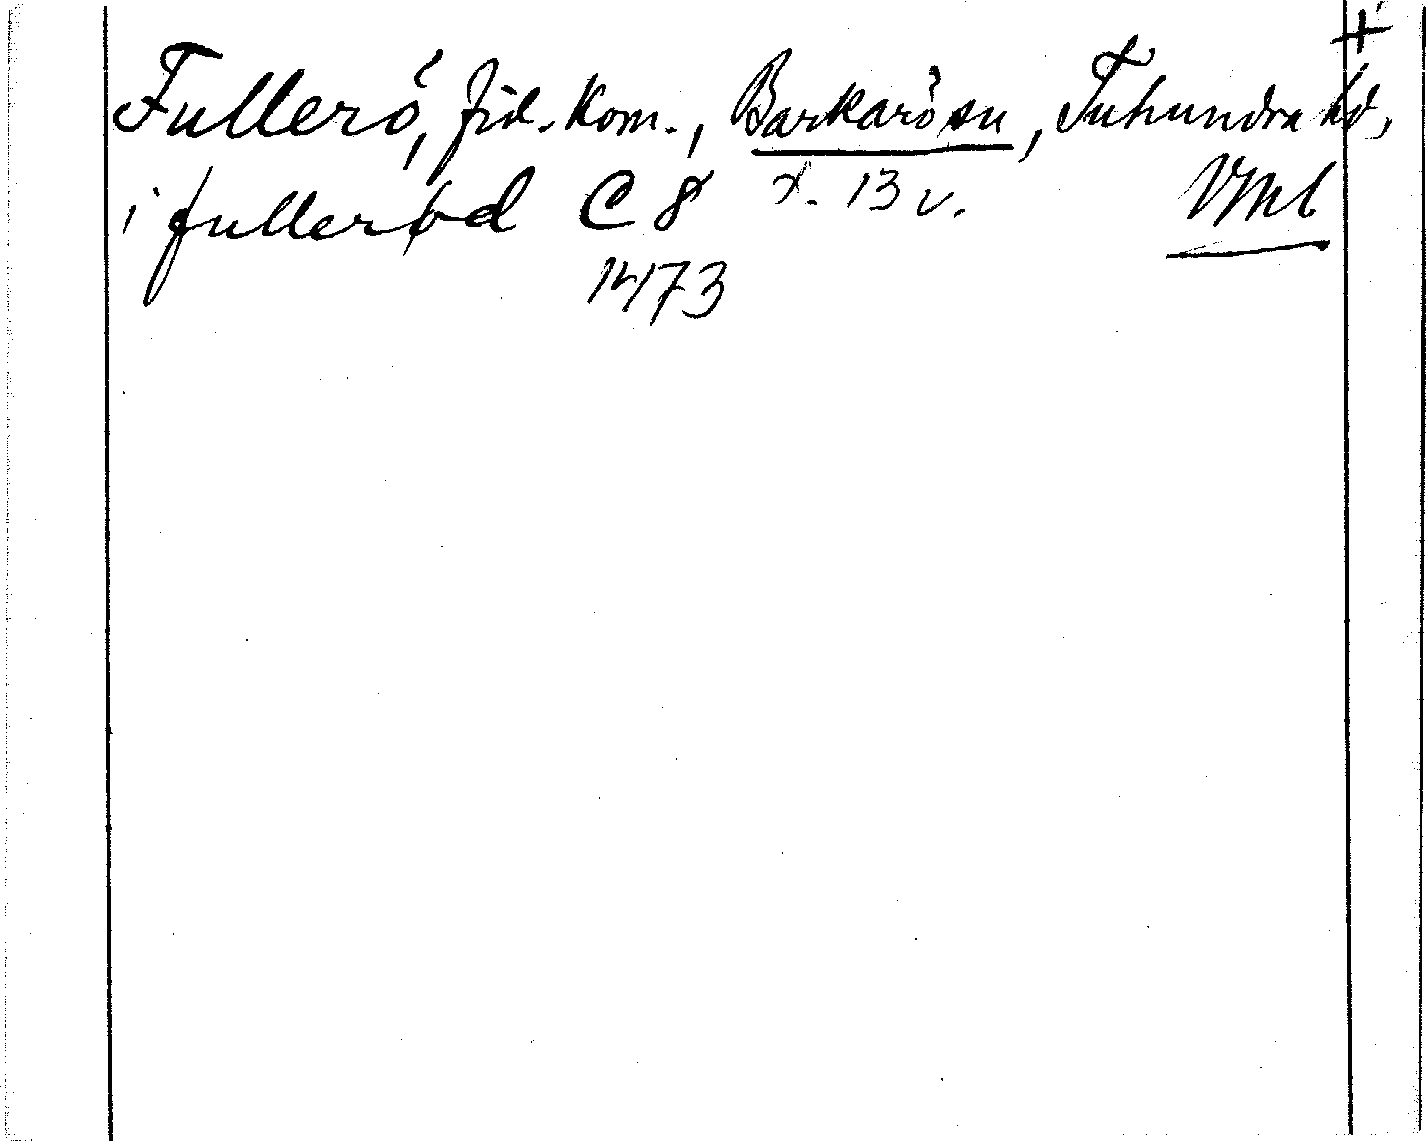 +
Fullerö, fid. kom., Barkarö sn, Tuhundra hd,
i fullerød C 8 x. 13 v. Vml
1473